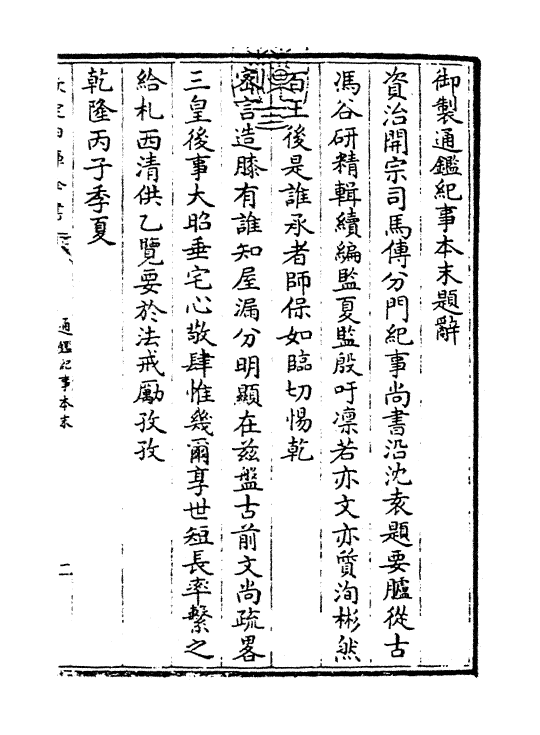 御製通鑑紀事本末題辭
資治開宗司馬傳分門紀事尚書沿沈袁題要臚從古
馮谷研精輯續編監夏監殷吁凛若亦文亦質洵彬然
百王後是誰承者師保如臨切惕乾
密言造膝有誰知屋漏分明顯在兹盤古前文尚疏畧
三皇後事大昭垂宅心敬肆惟幾爾享世短長率繫之
給札西清供乙覽要於法戒勵孜孜
乾隆丙子季夏
通鑑紀事本末
二